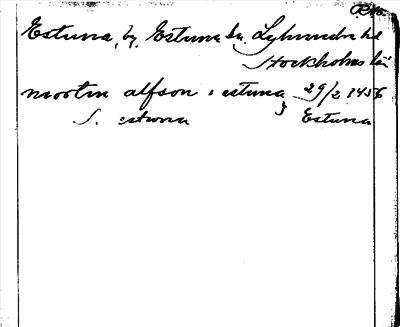 O.R.
Estuna, by, Estuna sn. Lyhundra hd
Stockholms län
morten alfson i estuna } 29/2 1456
S. estuna Estuna